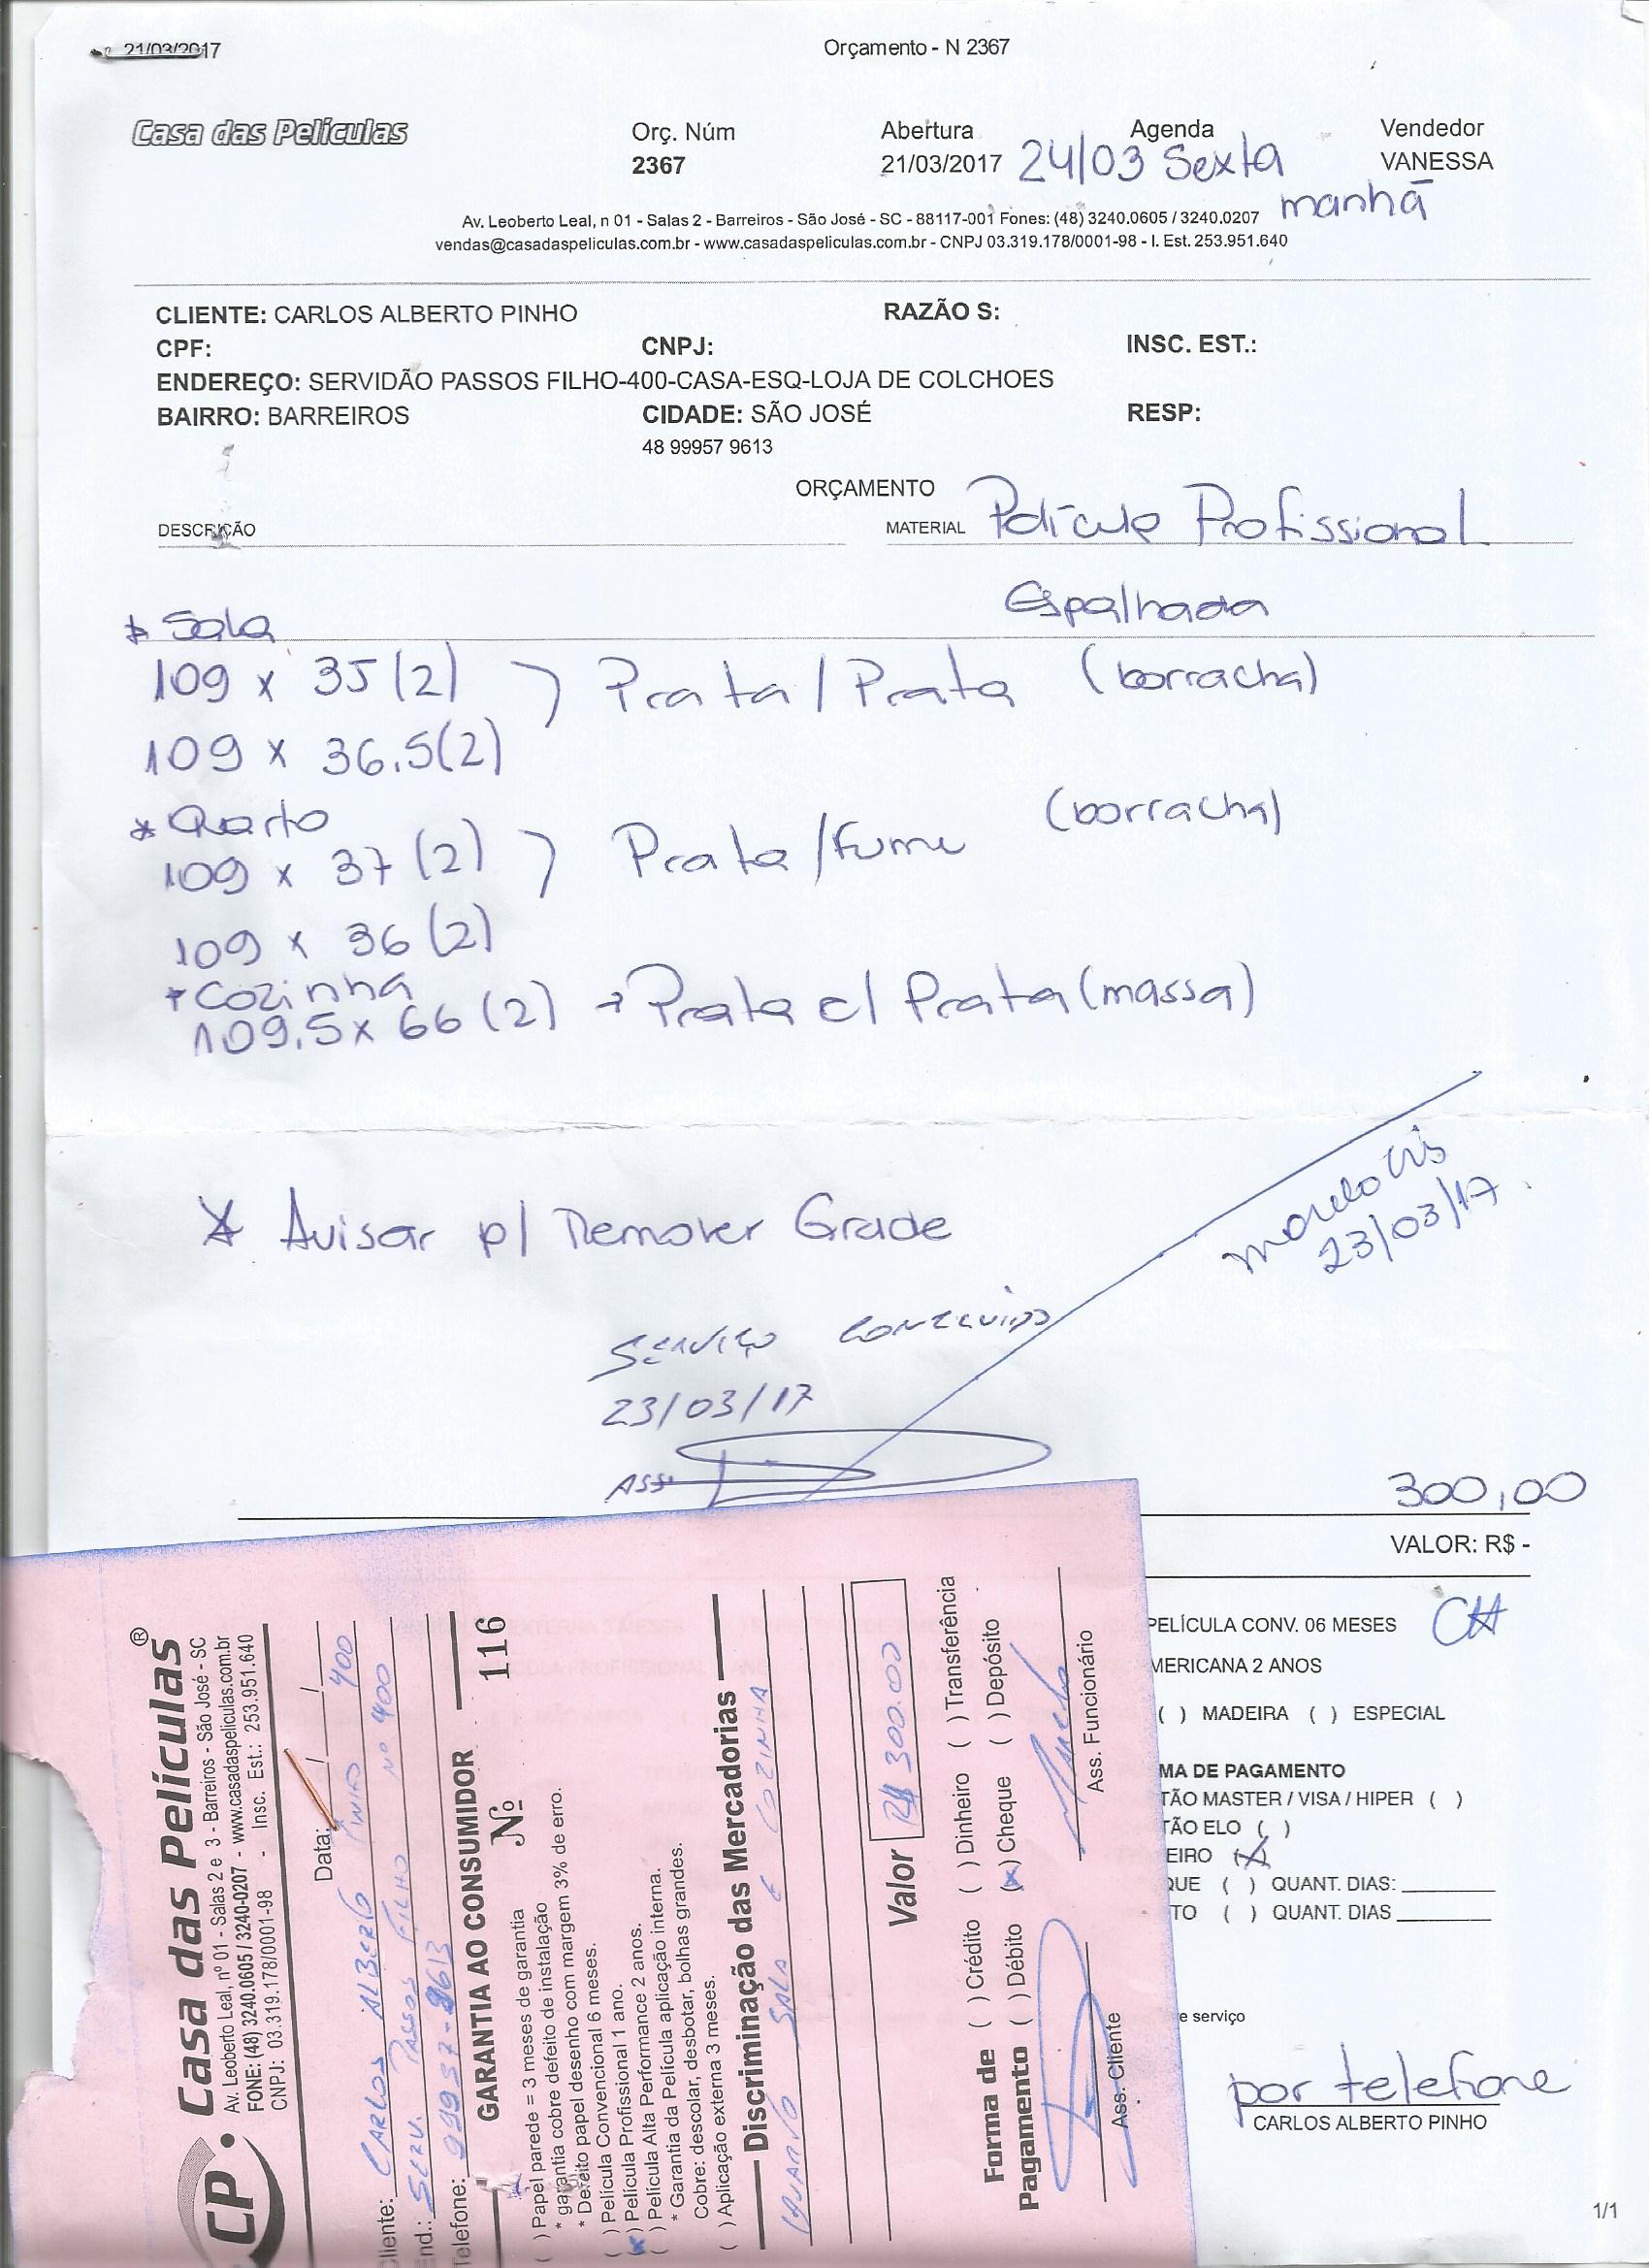 21/03/2017
Orçamento - N 2367
Casa das Películas
Orç. Núm
2367
Abertura
21/03/2017
Agenda
24/03 Sexta
manhã
Vendedor
VANESSA
Av. Leoberto Leal, n 01 - Salas 2 - Barreiros - São José - SC - 88117-001 Fones: (48) 3240.0605 / 3240.0207
vendas@casadaspeliculas.com.br - www.casadaspeliculas.com.br - CNPJ 03.319.178/0001-98 - I. Est. 253.951.640
CLIENTE: CARLOS ALBERTO PINHO RAZÃO S:
CPF: CNPJ: INSC. EST.:
ENDEREÇO: SERVIDÃO PASSOS FILHO-400-CASA-ESQ-LOJA DE COLCHOES
BAIRRO: BARREIROS CIDADE: SÃO JOSÉ RESP:
48 99957 9613
ORÇAMENTO
DESCRIÇÃO MATERIAL Película Profissional
Espalhada
* Sala
109 x 35 (2) ) Prata / Prata (borracha)
109 x 36.5 (2)
* Quarto (borracha)
109 x 37 (2) ) Prata / Fume
109 x 36 (2)
* Cozinha
109.5 x 66 (2) → Prata c/ Prata (massa)
* Avisar p/ Remover Grade
23/03/17
Serviço
23/03/17
Ass
300,00
VALOR: R$ -
PELÍCULA CONV. 06 MESES CH
MERICANA 2 ANOS
( ) MADEIRA ( ) ESPECIAL
MA DE PAGAMENTO
TÃO MASTER / VISA / HIPER ( )
TÃO ELO ( )
EIRO (X)
QUE ( ) QUANT. DIAS:
TO ( ) QUANT. DIAS
e serviço
por telefone
CARLOS ALBERTO PINHO
1/1
CP. Casa das Películas®
Av. Leoberto Leal, nº 01 - Salas 2 e 3 - Barreiros - São José - SC
FONE: (48) 3240.0605 / 3240-0207 - www.casadaspeliculas.com.br
CNPJ: 03.319.178/0001-98 - Insc. Est.: 253.951.640
Data: / /
liente: CARLOS ALBERTO PINHO 400
nd.: SERV. PASSOS FILHO Nº 400
elefone: 99957-9613
GARANTIA AO CONSUMIDOR Nº 116
( ) Papel parede = 3 meses de garantia
* garantia cobre defeito de instalação
* Defeito papel desenho com margem 3% de erro.
( ) Película Convencional 6 meses.
(x) Película Profissional 1 ano.
( ) Película Alta Performance 2 anos.
* Garantia da Película aplicação interna.
Cobre: descolar, desbotar, bolhas grandes.
( ) Aplicação externa 3 meses.
Discriminação das Mercadorias
QUARTO SALA E COZINHA
Valor R$ 300.00
Forma de Pagamento
( ) Crédito ( ) Dinheiro ( ) Transferência
( ) Débito (x) Cheque ( ) Depósito
Ass. Cliente Ass. Funcionário